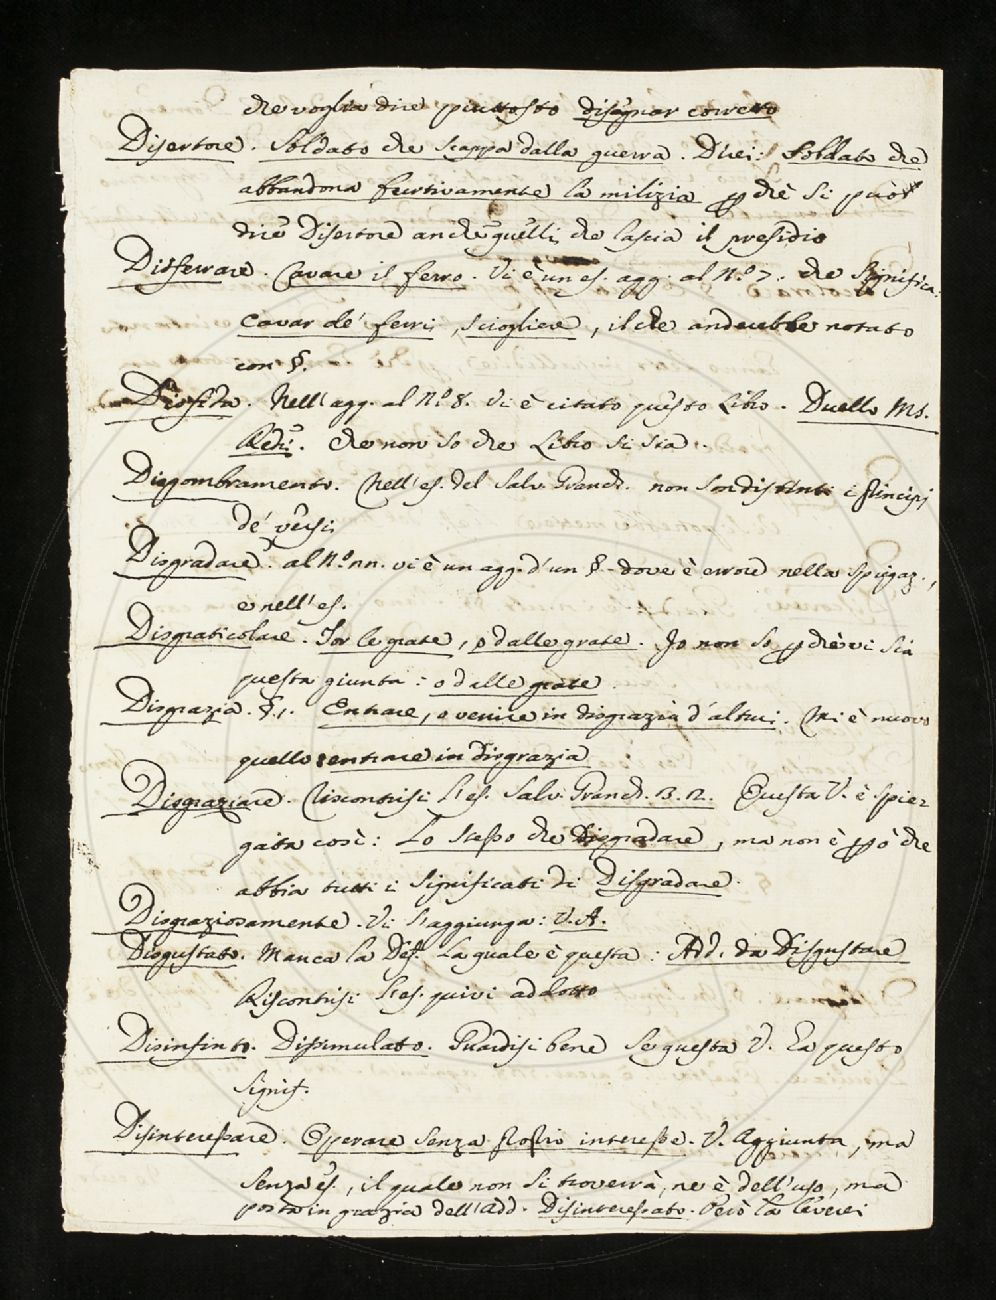 che voglia dire piuttosto disegnar corretto
Disertore. Soldato che scappa dalla guerra. Direi: Soldato che
abbandona furtivamente la milizia pchè si può
dire Disertore anche quelli che lascia il presidio
Disferrare. Cavare il ferro. Vi è un es. agg. al N.º 7. che significa:
cavar de' ferri, sciogliere, il che anderebbe notato
con §.
Disfida. Nell'agg. al N.º 8. vi è citato questo Libro. Duello Ms.
Redi. che non so che Libro si sia.
Disgombramento. Nell'es. del Salv. Granch. non son distinti i principj
de' versi
Disgradare. al N.º nn. vi è un agg. d'un §. dove è errore nella spiegaz.,
e nell'es.
Disgraticolare. Tor le grate, o dalle grate. Io non so pchè vi sia
questa giunta: o dalle grate
Disgrazia. §.1. Entrare, o venire in disgrazia d'altrui. Mi è nuovo
quello entrare in disgrazia
Disgraziare. Riscontrisi l'es. Salv. Granch. 3. 2. Questa V. è spie-
gata così: Lo stesso che Disgradare, ma non è pò che
abbia tutti i significati di Disgradare.
Disgraziosamente. Vi s'aggiunga: V. A.
Disgustato. Manca la Def. la quale è questa: Add. da Disgustare
Riscontrisi l'es. quivi addotto
Disinfinto. Dissimulato. Guardisi bene se questa V. ha questo
signif.
Disinteressare. Operare senza proprio interesse. V. Aggiunta, ma
senza es., il quale non si troverrà, ne è dell'uso, ma
posta in grazia dell'add. Disinteressato. Però la leverei